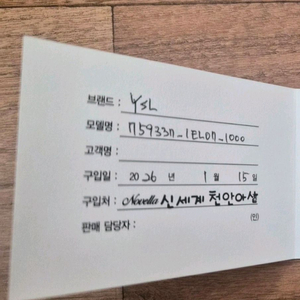 브랜드 : YSL
모델명 : 759337-1EL07-1000
고객명 :
구입일 : 2026 년 1 월 15 일
구입처 : Novella 신세계 천안아산
판매 담당자 : (인)